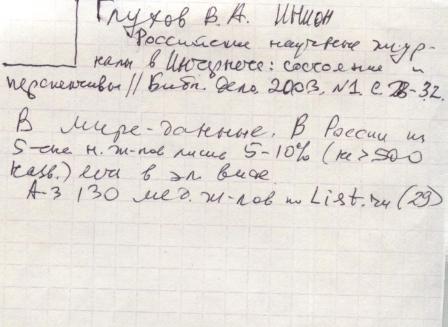 Глухов В. А. ИНИОН
Российские научные жур-
налы в Интернете: состояние и
перспективы // Библ. дело 2003, N1. С. 28-32
В мире - данные. В России из
5- н. ж-лов лишь 5-10% (не > 500
назв.) есть в эл. виде
А-З 130 мед. ж-лов по List.ru (29)